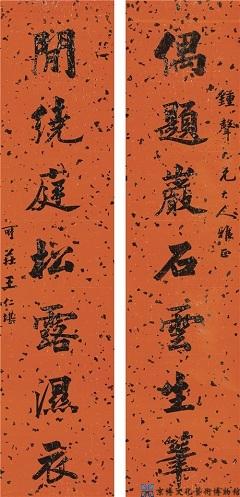 鍾聲大兄大人雅正
偶題巖石雲生筆
閒繞庭松露濕衣
可莊王仁堪
京博文化藝術博物館